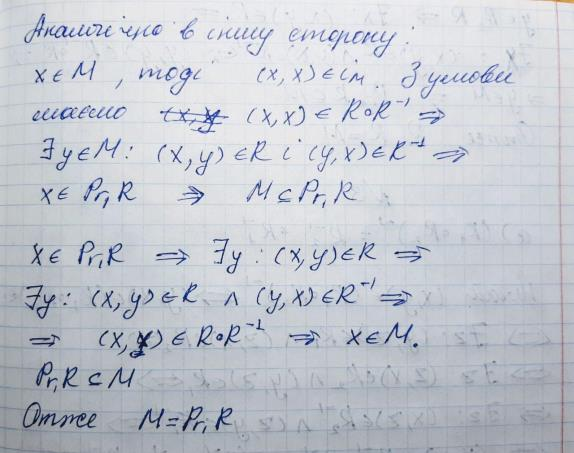 Аналогічно в іншу сторону:
x ∈ M, тоді (x, x) ∈ i_M. З умови
маємо (x, x) ∈ R∘R⁻¹ ⇒
∃y∈M: (x, y) ∈ R і (y, x) ∈ R⁻¹ ⇒
x ∈ Pr₁R ⇒ M ⊆ Pr₁R
x ∈ Pr₁R ⇒ ∃y: (x, y) ∈ R ⇒
∃y: (x, y) ∈ R ∧ (y, x) ∈ R⁻¹ ⇒
⇒ (x, x) ∈ R∘R⁻¹ ⇒ x ∈ M.
Pr₁R ⊂ M
Отже M = Pr₁R